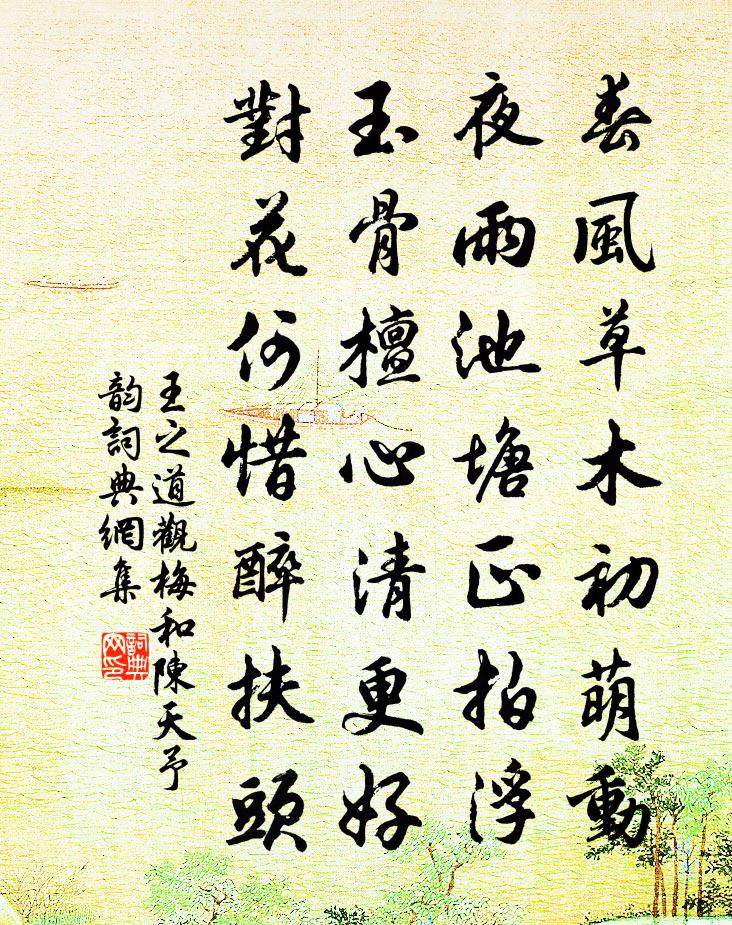 春風草木初萌動
夜雨池塘正拍浮
玉骨檀心清更好
對花何惜醉扶頭
王之道觀梅和陳天予
韵詞典網集
詞典
网印